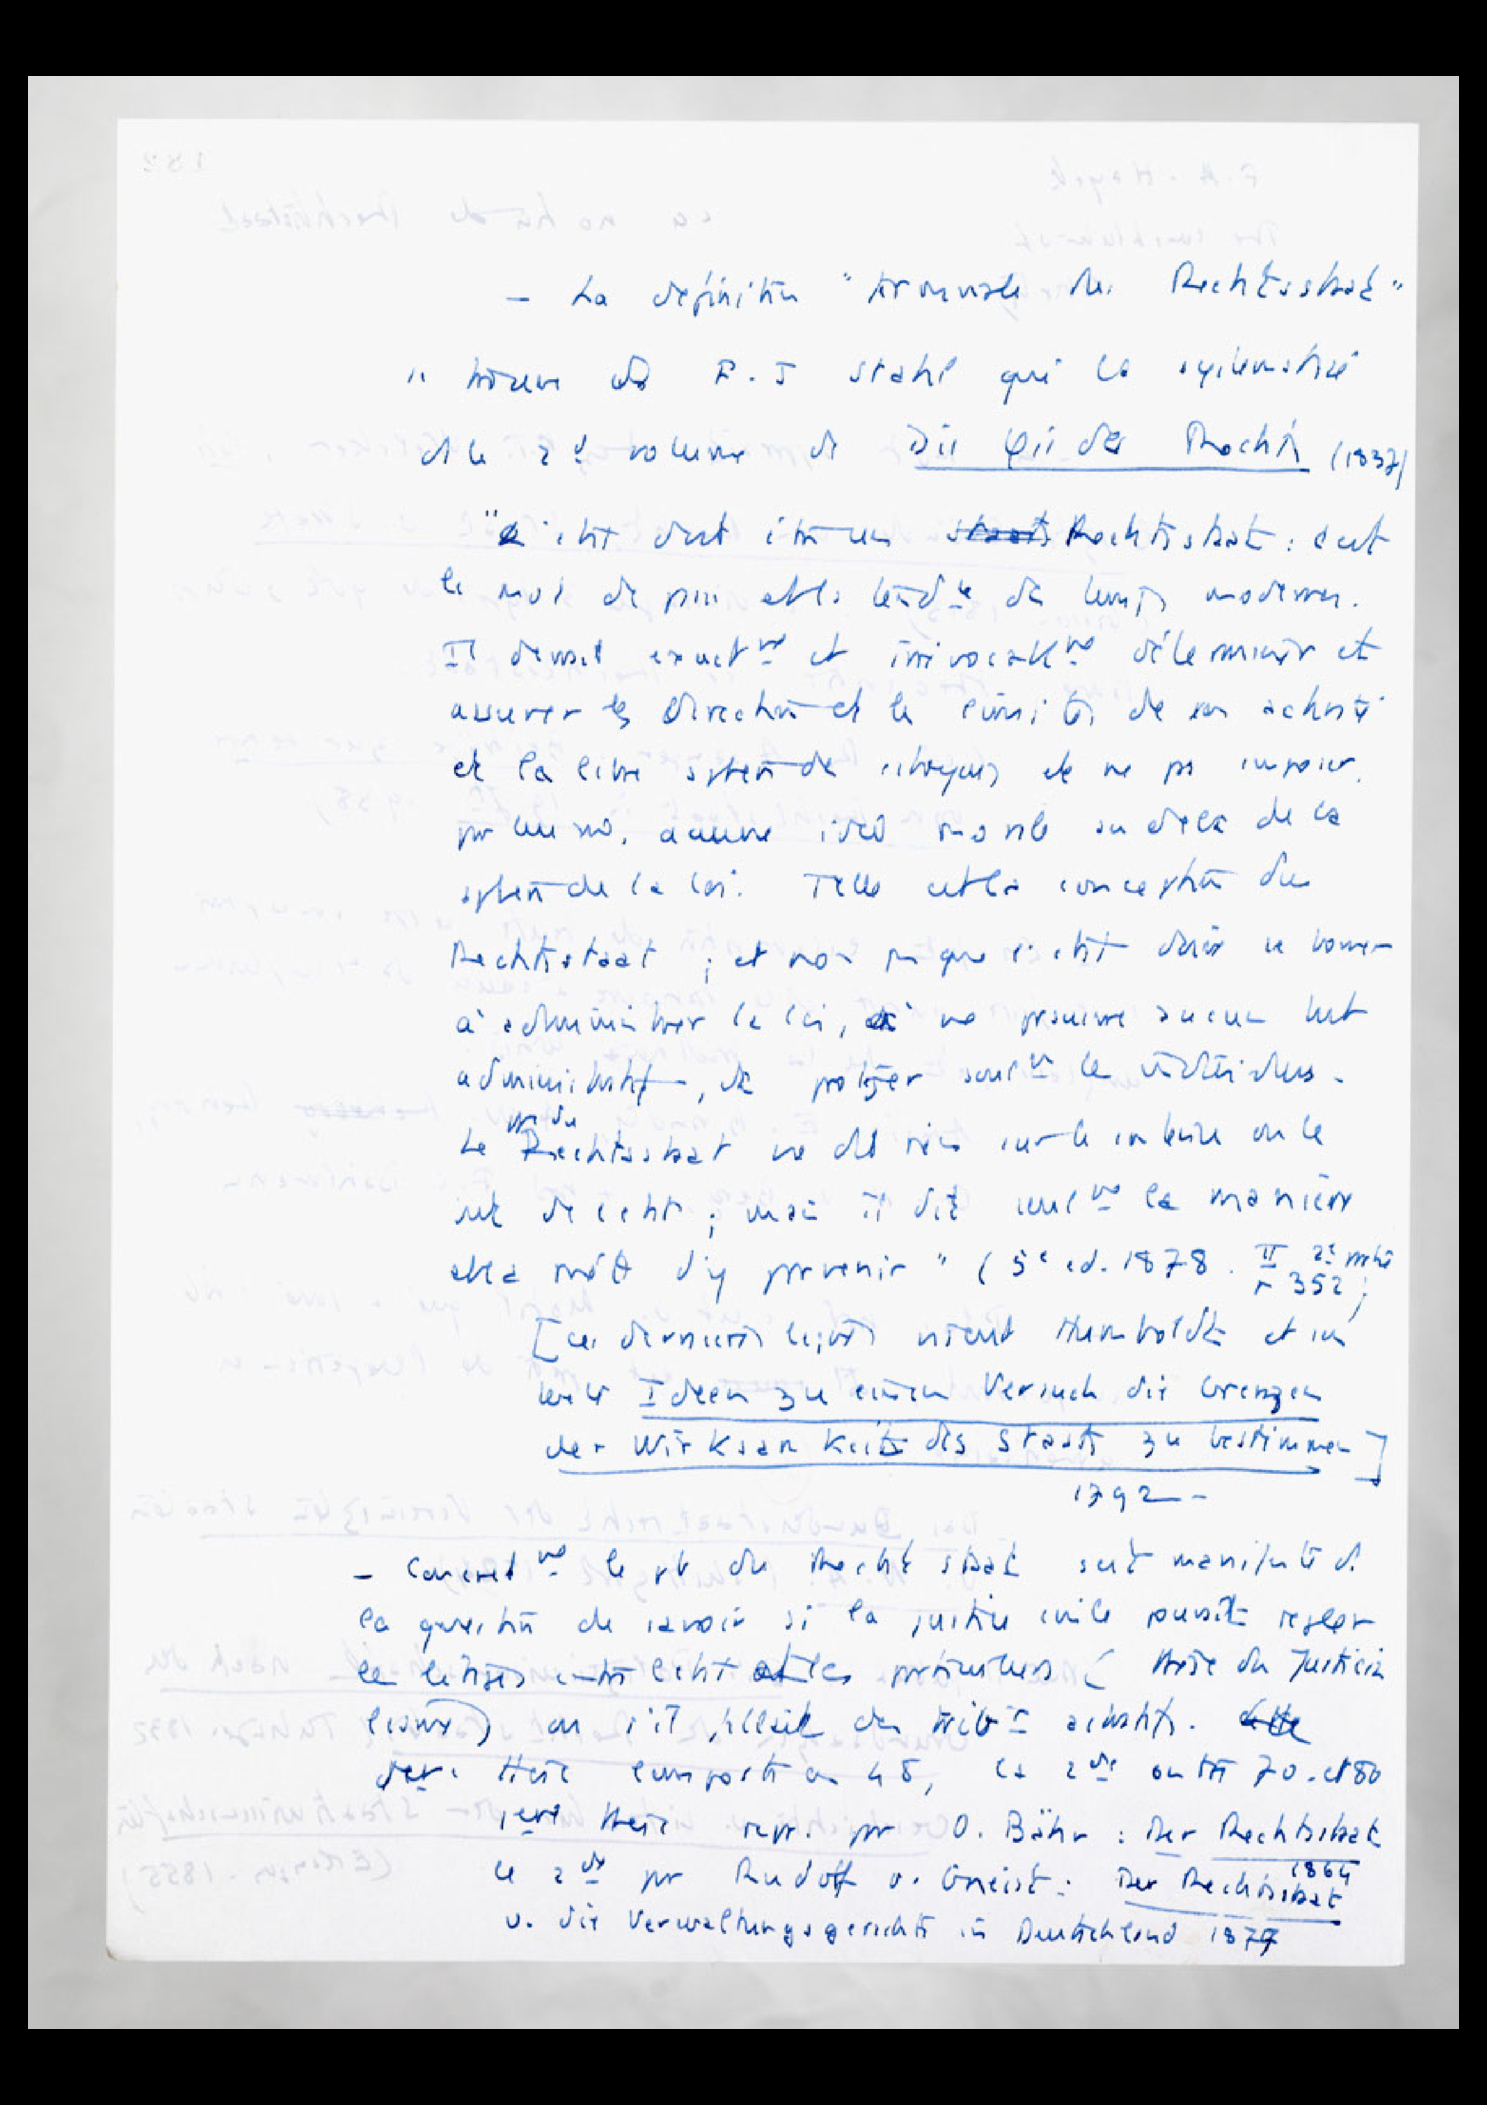 - La définition "           du Rechtsstaat"
              F.J Stahl qui l'a systématisé
ds le 2e volume de Die φie des Rechts (1837)
"L'état doit être un Staats Rechtsstaat : c'est
le mot de               et la            des temps modernes.
Il devrait exactmt et irrévocablmt déterminer et
assurer les direction et les limites de son activité
et la libre sphère des citoyens et ne pas imposer
par lui mê. aucune idée morale au delà de la
sphère de la loi. Telle est la conception du
Rechtsstaat ; et non pas que l'état doive se borner
à administrer la loi, à ne poursuivre aucun but
administratif, de protéger seulmt les individus.
Le mot du Rechtsstaat ne dit rien sur le contenu ou le
but de l'état ; mais il dit seulmt la manière
et la méth d'y parvenir" (5e ed. 1878. II 2e partie p 352)
[ces dernières lignes visent Humboldt et son
texte Ideen zu einem Versuch die Grenzen
der Wirksamkeit des Staats zu bestimmen]
1792 -
- Concretmt le pb du Rechtsstaat s'est manifesté ds
la question de savoir si la justice civile pouvait régler
les litiges entre l'état et les particuliers (thèse du Justicia
lisme) ou s'il fallait des tribx administfs. Cette
1ère thèse l'emporta en 48, la 2de entre 70. et 80
1ère thèse repr. par O. Bähr : Der Rechtsstaat
1864
la 2de par Rudolf v. Gneist : Der Rechtsstaat
u. die Verwaltungsgerichte in Deutschland 1879